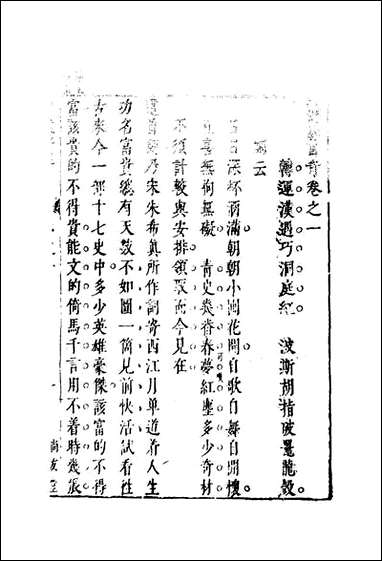 奇卷之一
轉運漢遇巧洞庭紅　波斯胡指破鼉龍殼
云
深杯酒滿朝朝小圃花開自歌自舞自開懷
喜無拘無礙　青史幾番春夢紅塵多少奇材
不須計較與安排領取而今見在
這首詞乃宋朱希真所作詞寄西江月单道着人生
功名富貴總有天数不如圖一箇見前快活試看徃
古來今一部十七史中多少英雄豪傑該富的不得
富該貴的不得貴能文的倚馬千言用不着時幾張
尚友堂